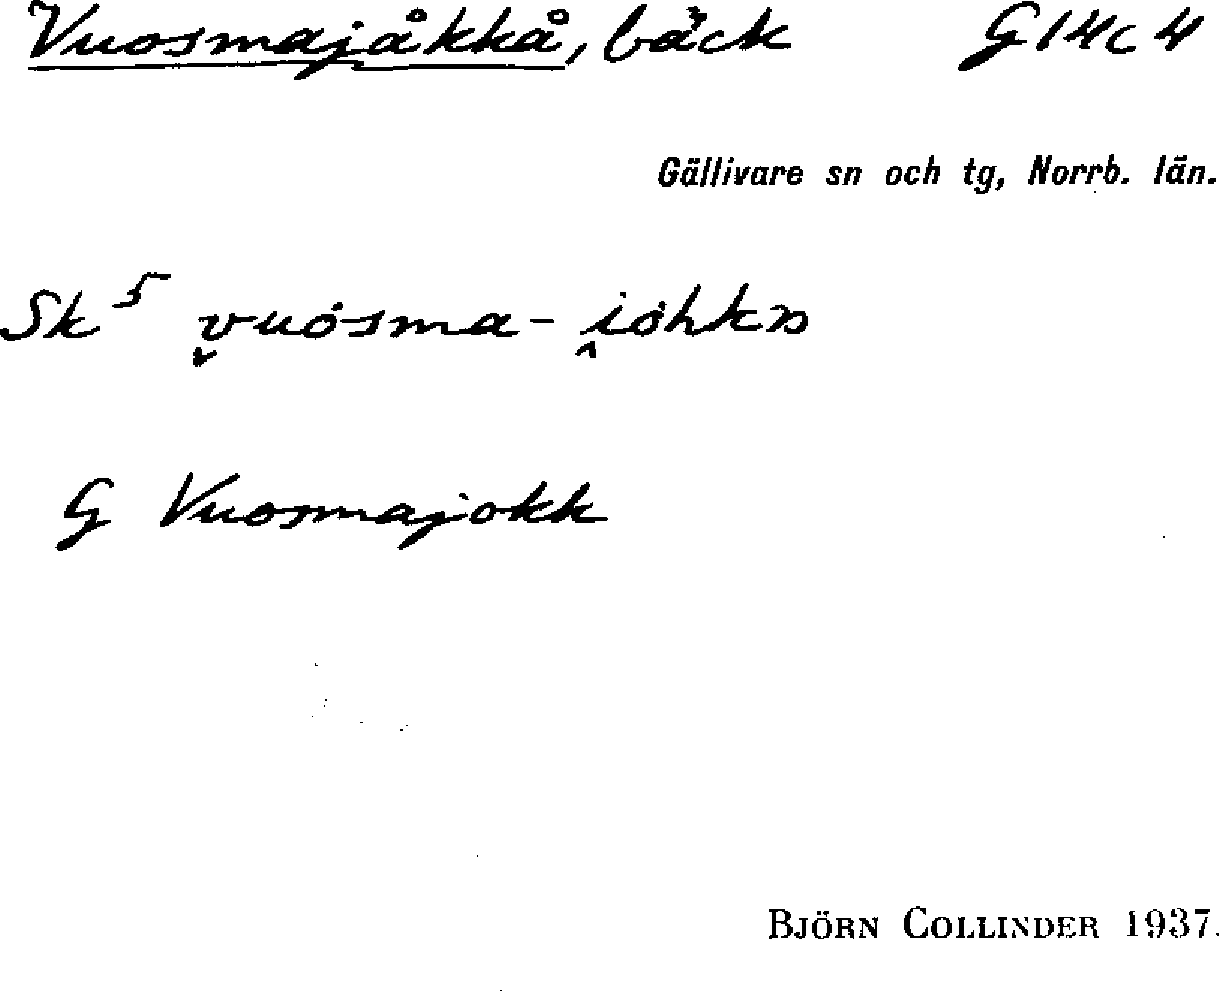 Vuosmajåkkå, bäck G14c4
Gällivare sn och tg, Norrb. län.
Sk 5 v̬uȯsma-i̭ȯhkɒ
G Vuosmajokk
BJÖRN COLLINDER 1937.